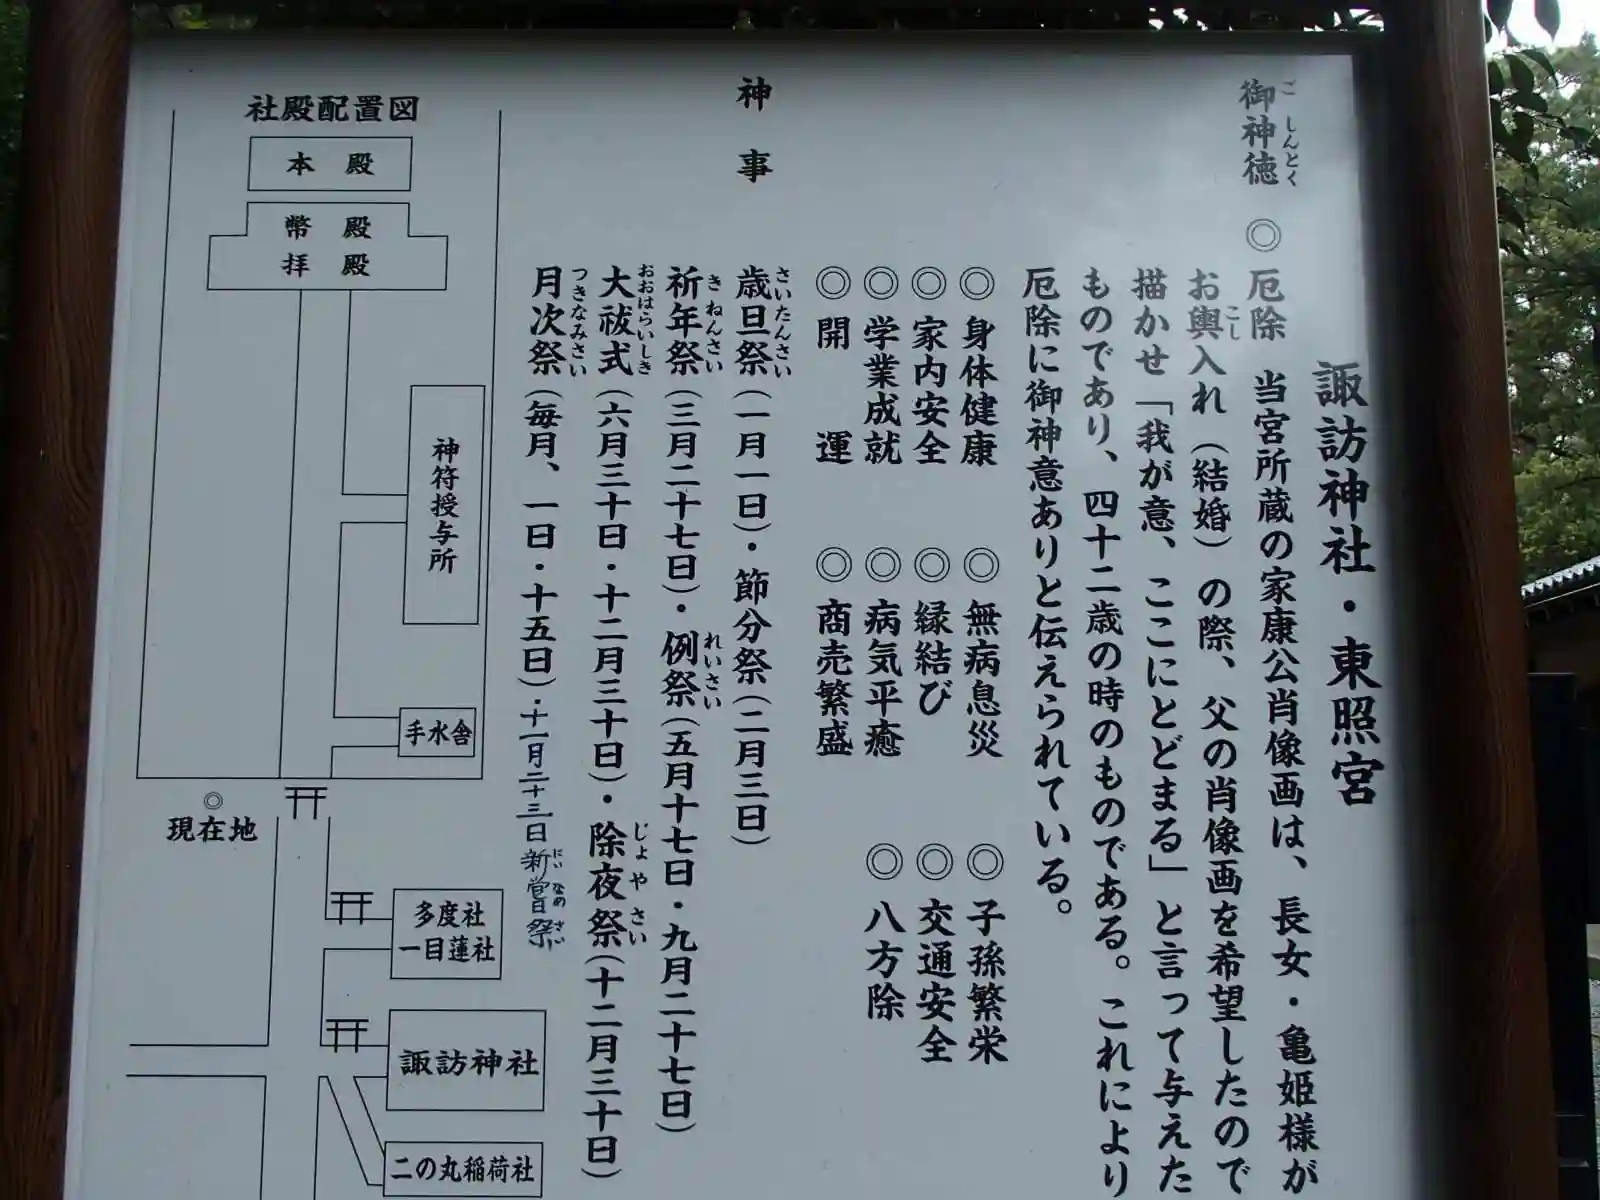 諏訪神社・東照宮
御神徳
ごしんとく
◎厄除　当宮所蔵の家康公肖像画は、長女・亀姫様が
お輿入れ（結婚）の際、父の肖像画を希望したので
こし
描かせ「我が意、ここにとどまる」と言って与えた
ものであり、四十二歳の時のものである。これにより
厄除に御神意ありと伝えられている。
◎身体健康　◎無病息災　◎子孫繁栄
◎家内安全　◎縁結び　◎交通安全
◎学業成就　◎病気平癒　◎八方除
◎開運　◎商売繁盛
神事
歳旦祭（一月一日）・節分祭（二月三日）
さいたんさい
祈年祭（三月二十七日）・例祭（五月十七日・九月二十七日）
きねんさい　れいさい
大祓式（六月三十日・十二月三十日）・除夜祭（十二月三十日）
おおはらいしき　じょやさい
月次祭（毎月、一日・十五日）・十一月二十三日新嘗祭
つきなみさい　にいなめさい
社殿配置図
本殿
幣殿
拝殿
神符授与所
手水舎
◎
現在地
多度社
一目蓮社
諏訪神社
二の丸稲荷社